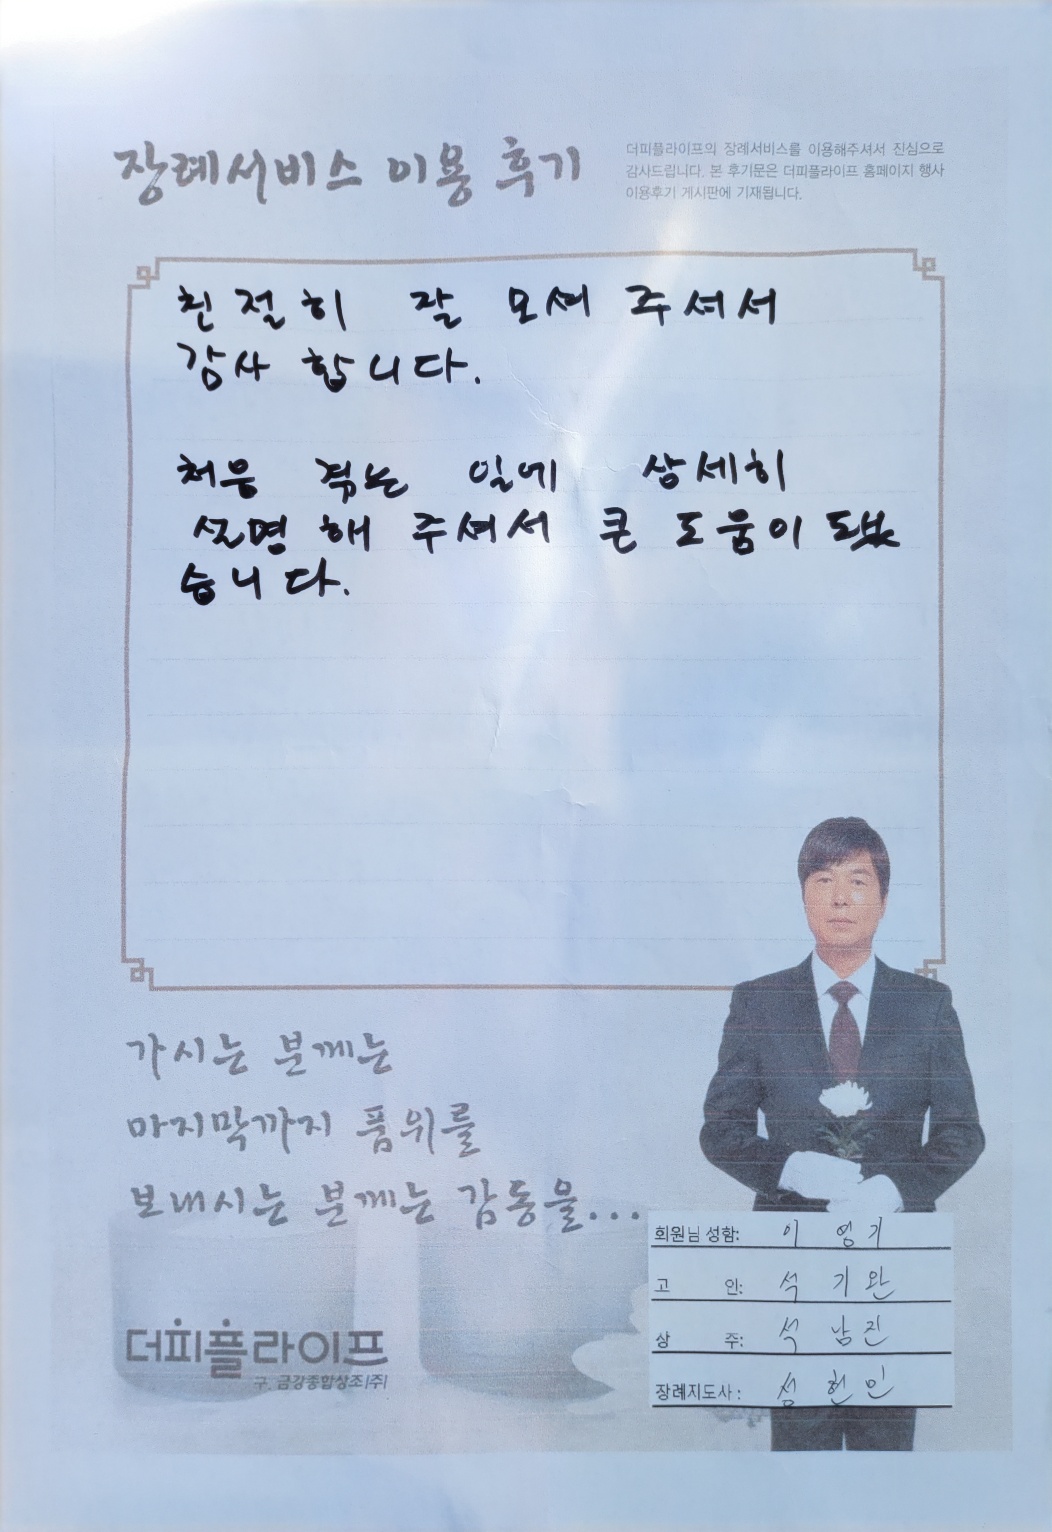 장례서비스 이용 후기
더피플라이프의 장례서비스를 이용해주셔서 진심으로
감사드립니다. 본 후기문은 더피플라이프 홈페이지 행사
이용후기 게시판에 기재됩니다.
친절히 잘 모셔 주셔서
감사 합니다.
처음 겪는 일에 상세히
설명 해 주셔서 큰 도움이 됐
습니다.
가시는 분께는
마지막까지 품위를
보내시는 분께는 감동을...
회원님 성함: 이 영기
고 인: 석 기완
상 주: 석 남진
장례지도사: 섬 헌민
더피플라이프
구. 금강종합상조(주)